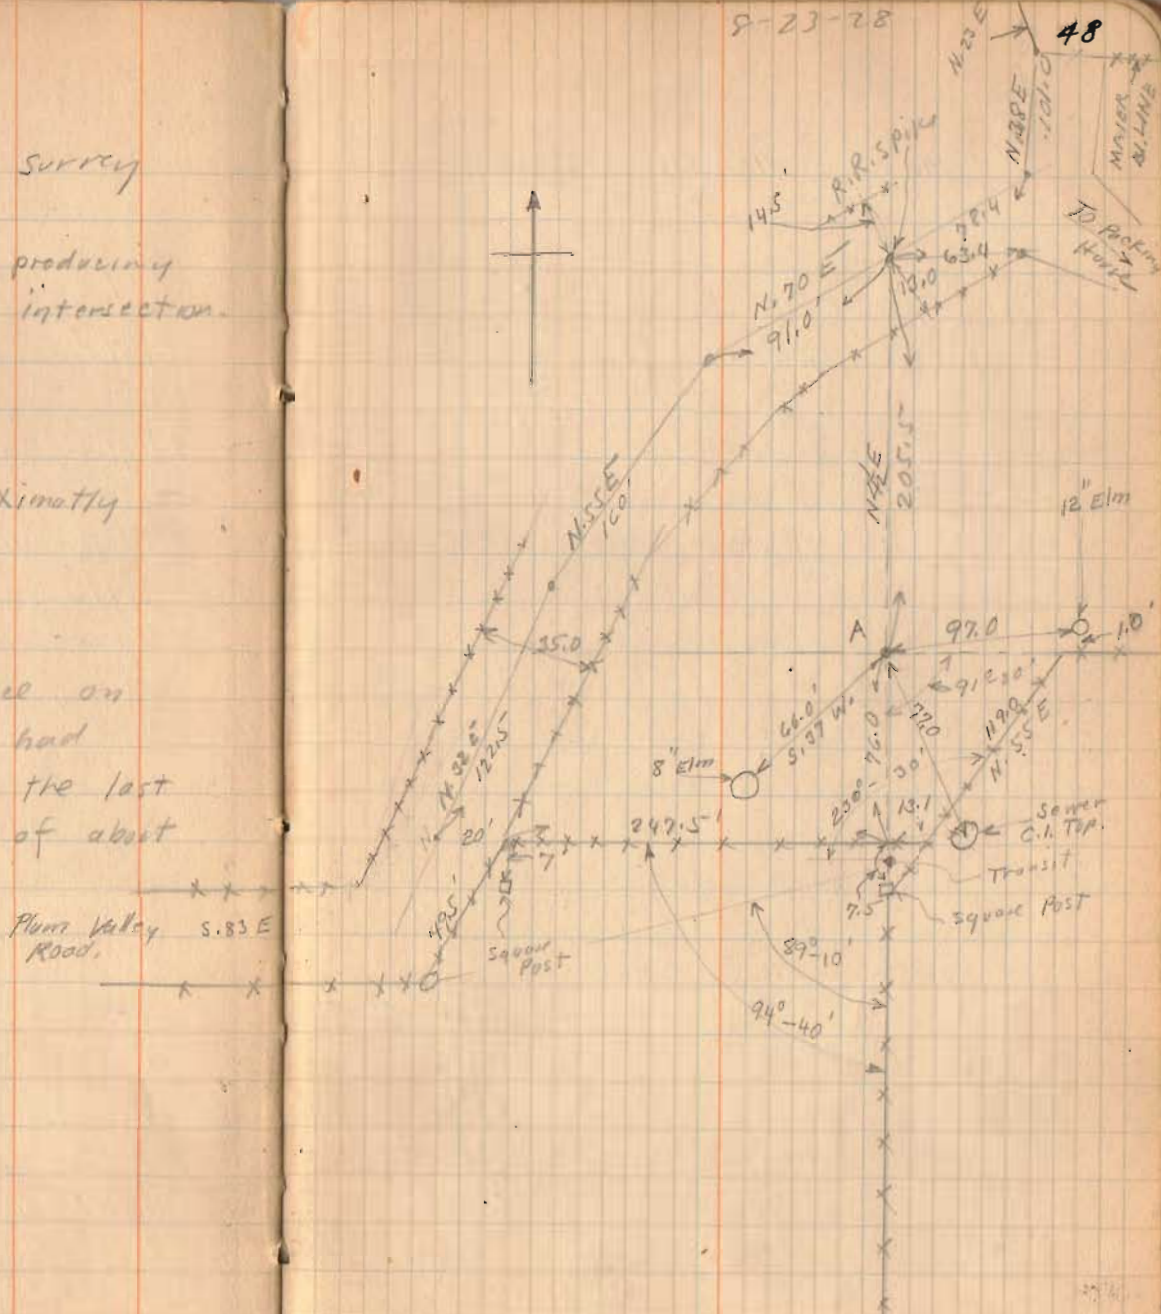 Survey
producing
intersection.
ximatly
on
had
the last
of about
Plum Valley
Road.
S.83 E
8-23-28
48
N.23 E
N.38E
101.0
MAIER
N.LINE
To Packing
House
R.R. Spike
14.5'
78.4
63.4
13.0
N.70 E
91.0'
N.55 E
160'
205.5
12" Elm
A
97.0
1.0'
35.0
66.0'
S.37 W.
76.0
77.0
119.0
N.55 E
8" Elm
N.32 E
122.5
20'
247.5'
230°-30'
13.1
Sewer
C.I. Top.
Transit
7.5
Square Post
49.5'
Square
Post
89°-10'
94°-40'